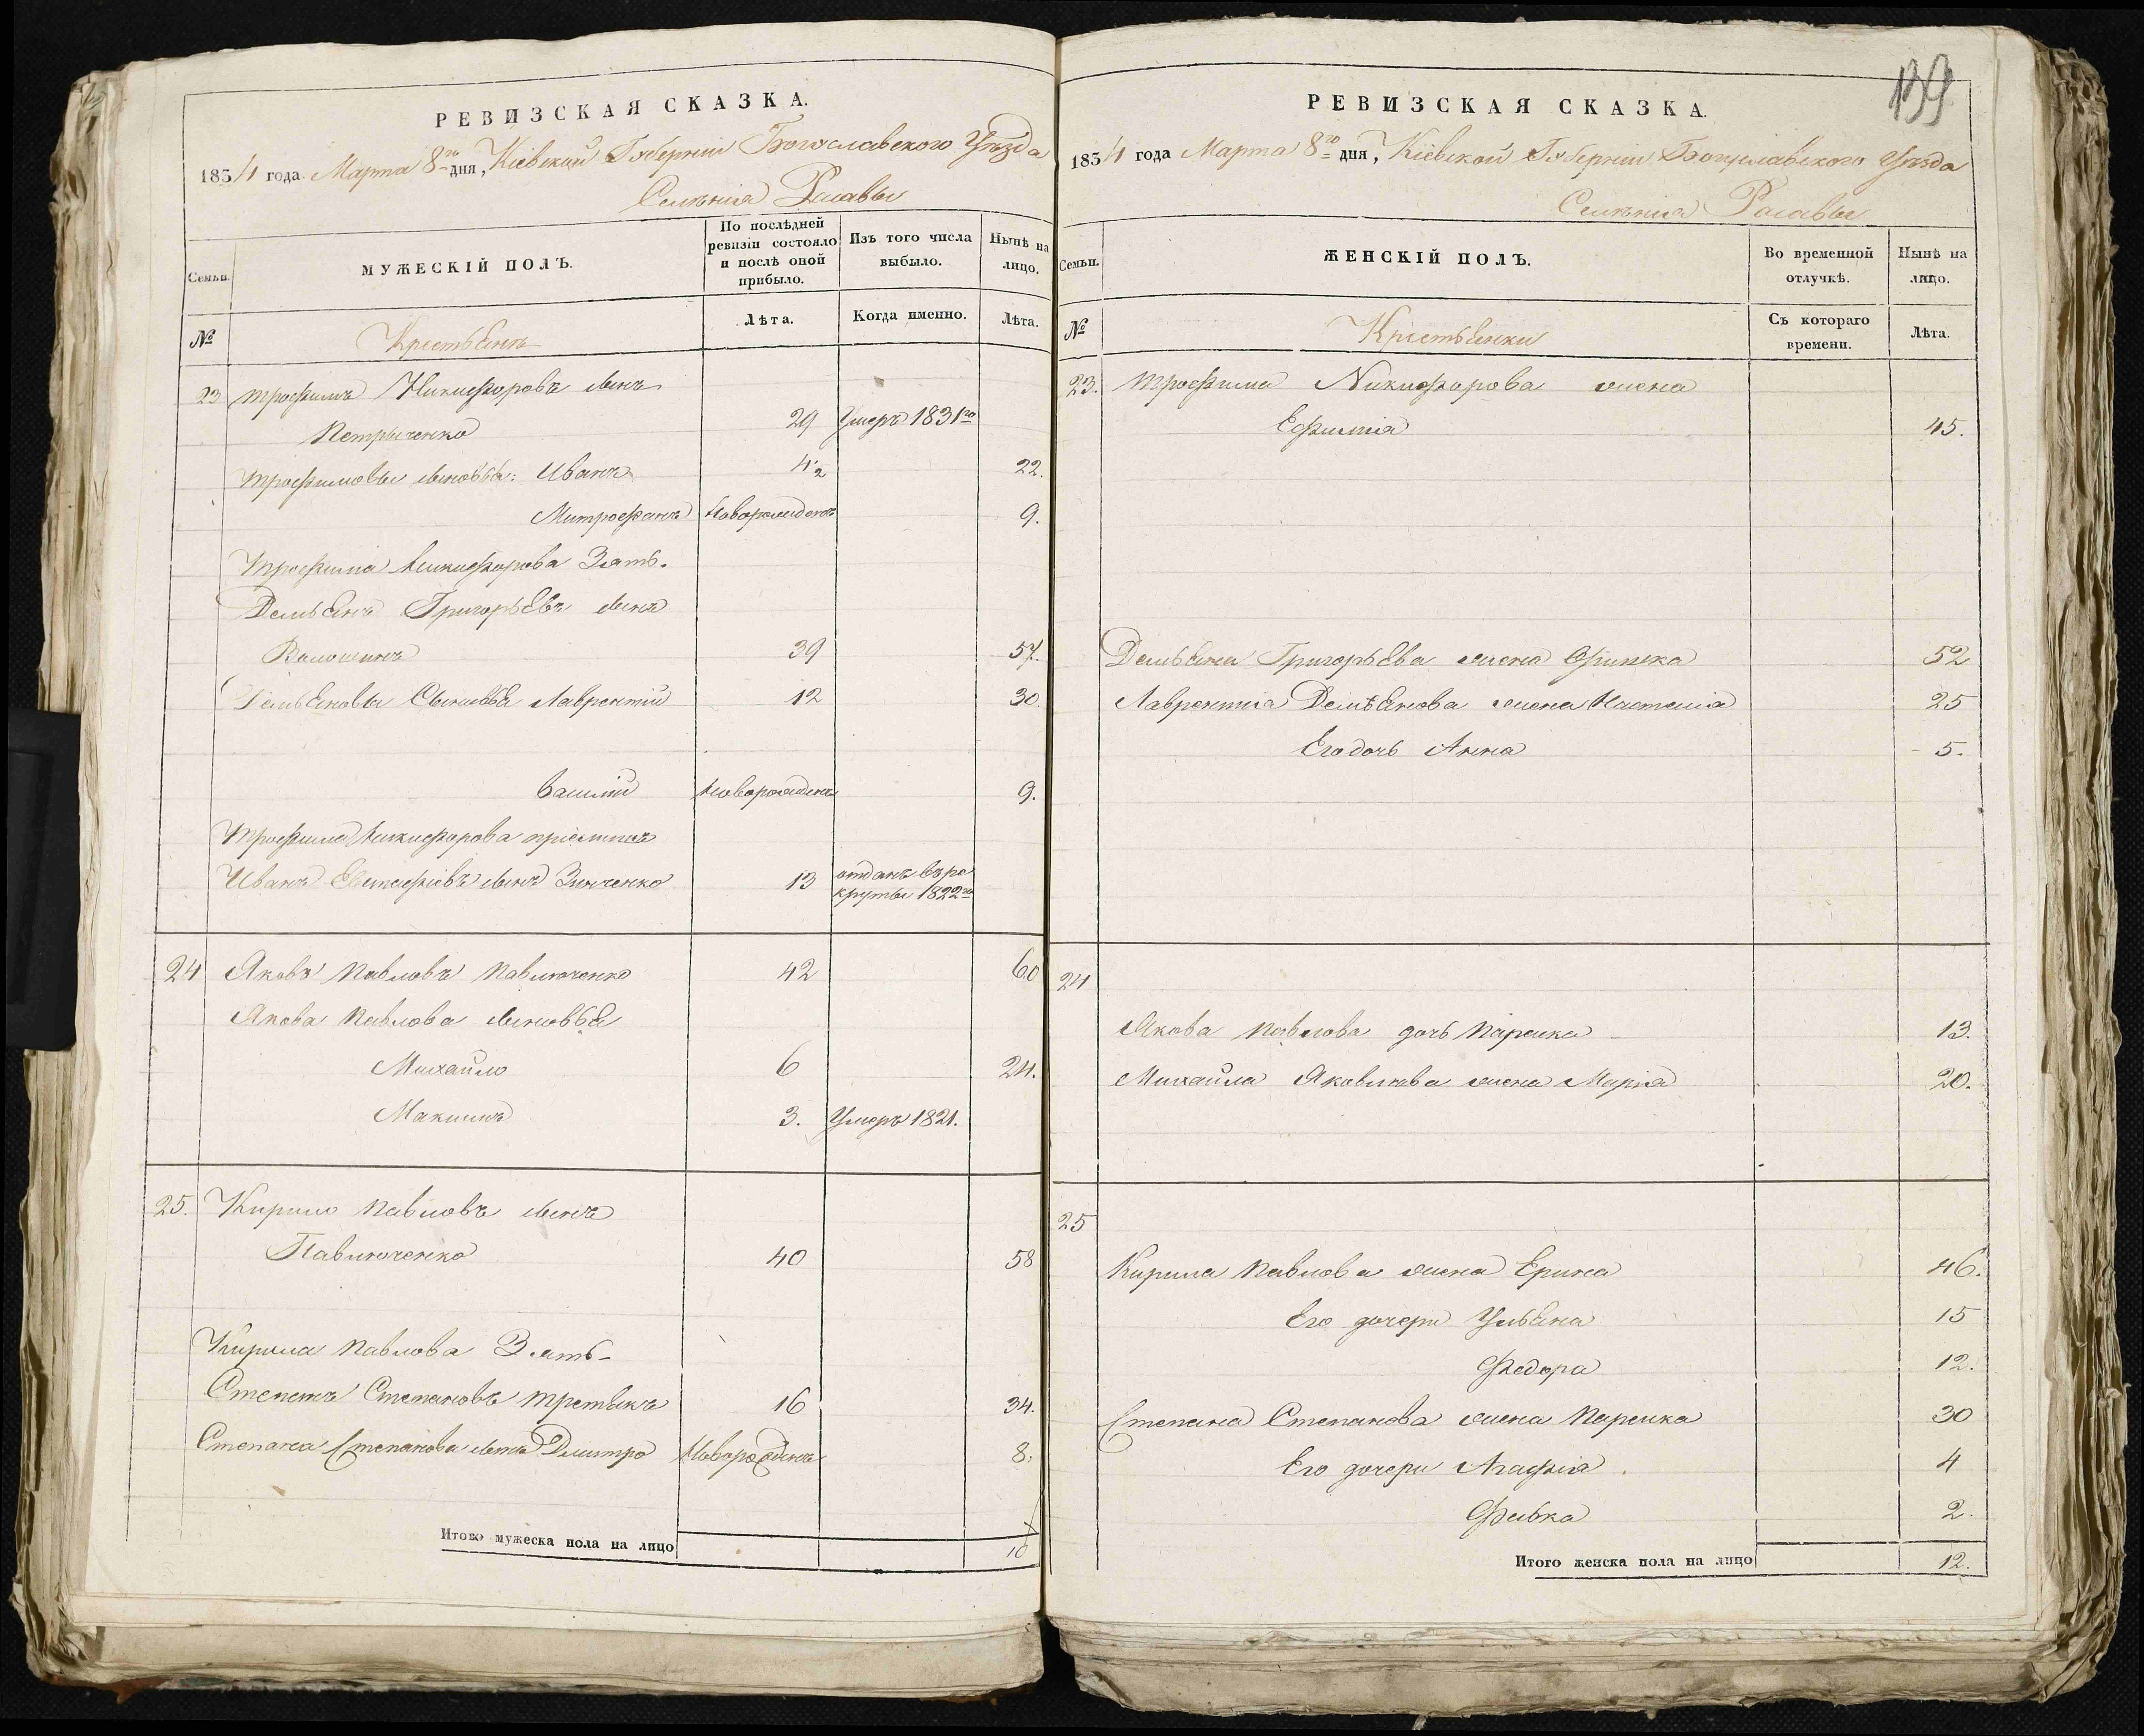 РЕВИЗСКАЯ СКАЗКА.
1834 года Марта 8го дня, Кіевской Губерніи Богуславского Уѣзда
Селенія Расавы
Семьи.
МУЖЕСКІЙ ПОЛЪ.
По послѣдней ревизіи состояло и послѣ оной прибыло.
Изъ того числа выбыло.
Нынѣ на лицо.
№
Крестьяне
Лѣта.
Когда именно.
Лѣта.
23 Трофимъ Никифоровъ сынъ
Петрыченко 29 Умеръ 1831го
Трофимовы сыновья: Иванъ 4½ 22.
Митрофанъ Новорожденъ 9.
Трофима Никифорова Зять.
Демьянъ Григорьевъ сынъ
Волошинъ 39 57.
Демьяновы Сыновья Лаврентій 12 30.
Василій Новорожденъ 9.
Трофима Никифорова пріемышъ
Иванъ сынъ Зинченко 13 отданъ въ ре
круты 1822го
24 Яковъ Павловъ Павлюченко 42 60
Якова Павлова сыновья
Михайло 6 24.
Максимъ 3. Умеръ 1821.
25. Кирило Павловъ сынъ
Павлюченко 40 58
Кирила Павлова Зять
Степанъ Степановъ Третьякъ 16 34.
Степана Степанова сынъ Дмитро Новорожденъ 8.
Итого мужеска пола на лицо 10
139
РЕВИЗСКАЯ СКАЗКА.
1834 года Марта 8го дня, Кіевской Губерніи Богуславского Уѣзда
Селенія Расавы
Семьи.
ЖЕНСКІЙ ПОЛЪ.
Во временной отлучкѣ.
Нынѣ на лицо.
№
Крестьянки
Съ котораго времени.
Лѣта.
23. Трофима Никифорова жена
Ефимія 45.
Демьяна Григорьева жена Оришка 52
Лаврентія Демьянова жена Настасія 25
Его дочь Анна 5.
24
Якова Павлова дочь Параска 13.
Михайла Яковлева жена Марія 20.
25
Кирила Павлова жена Ерина 46.
Его дочери Ульяна 15
Федора 12.
Степана Степанова жена Параска 30
Его дочери Агафія 4
Февка 2.
Итого женска пола на лицо 12.